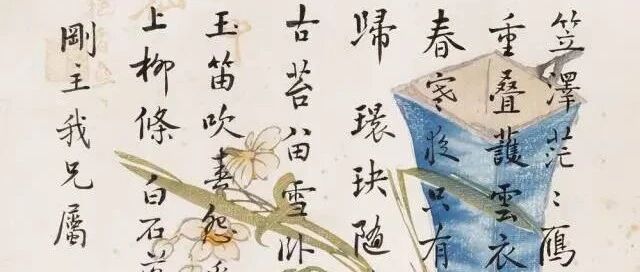 笠澤茫〻鴈
重疊護雲衣
春寒夜只有
歸環玦隨
古苔留雪卧
玉笛吹春怨
上柳條白石
剛主我兄屬